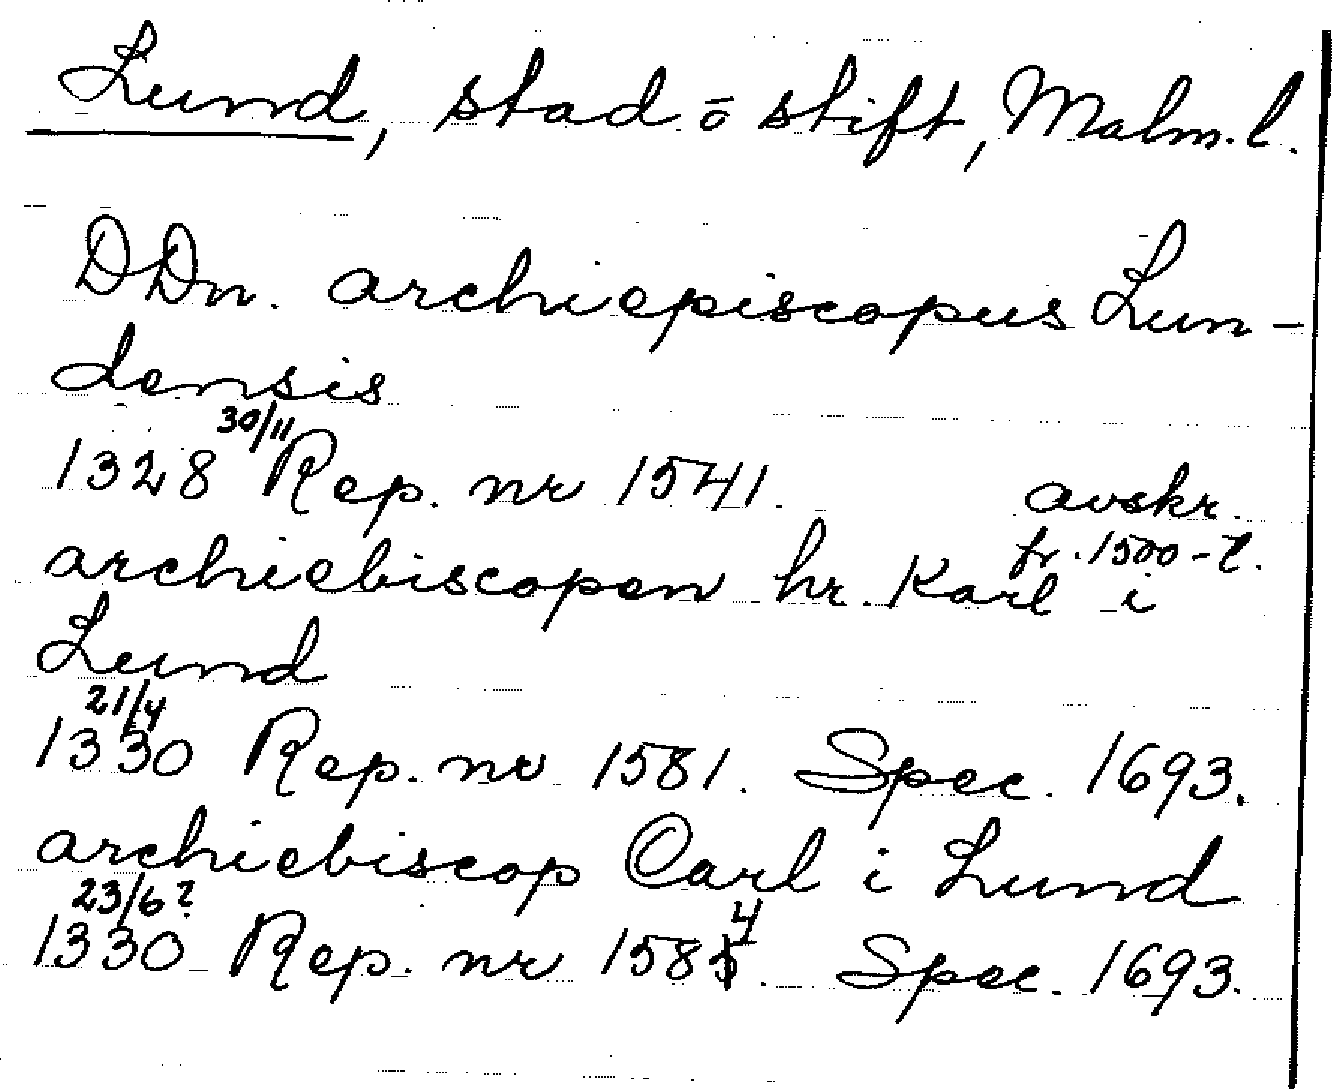 Lund, stad ō stift, Malm. l.
DDn. archiepiscopus Lun-
densis
30/11
1328 Rep. nr 1541. avskr.
fr. 1500-t.
archiebiscopen hr. Karl i
Lund
21/4
1330 Rep. nr 1581. Spec. 1693.
archiebiscop Carl i Lund
23/6?
1330 Rep. nr 1584. Spec. 1693.